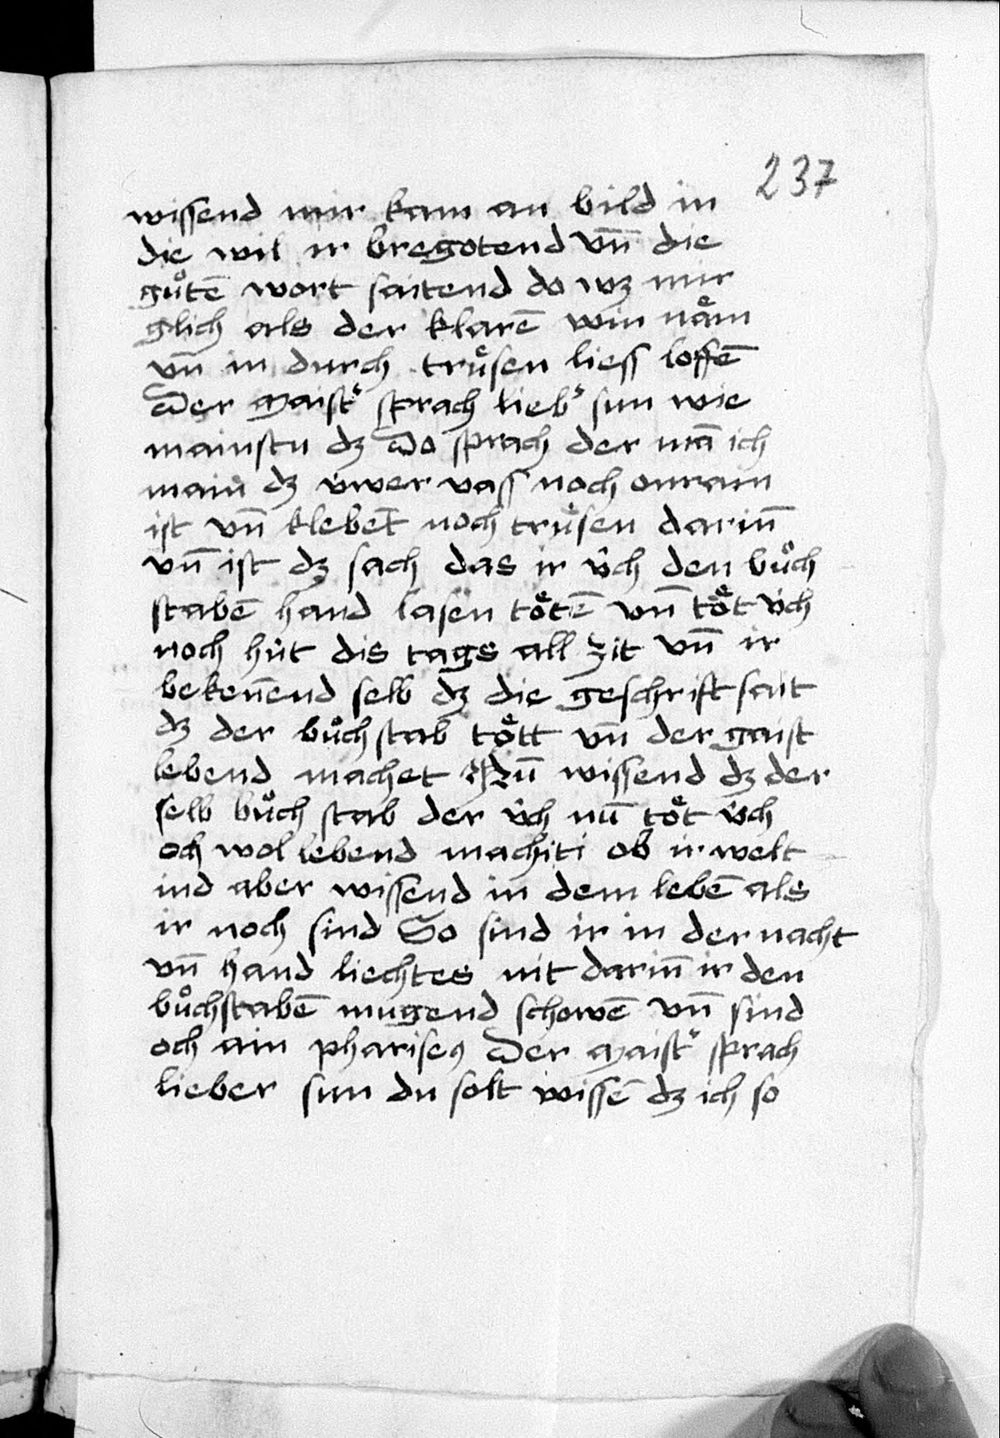 237
wissend mir kam an bild in
die wil ir bregotend vn̄ die
gůtē wort saitend do wʒ mir
glich als der klarē win nåm
vn̄ in durch trůsen liess loffē
Der maistʼ sprach liebʼ sun wie
mainstu dʒ Do sprach der mā ich
main dʒ úwer vass noch onrain
ist vn̄ klebet noch trůsen darin̄
vn̄ ist dʒ sach das ir úch den bůch
stabē hand lasen tôͤtē vn̄ toͤt úch
noch hút dis tags all zit vn̄ ir
beken̄end selb dʒ die geschrift sait
dʒ der bůchstab toͤtt vn̄ der gaist
lebend machet Nun̄ wissend dʒ der
selb bůch stab der úch nū toͤt úch
och wol lebend machiti ob ir welt
ind aber wissend in dem lebē als
ir noch sind So sind ir in der nacht
vn̄ hand liechtes nit darin̄ ir den
bůchstabē mugend schowē vn̄ sind
och ain phariseꝰ Der maistʼ sprach
lieber sun du solt wissē dʒ ich so